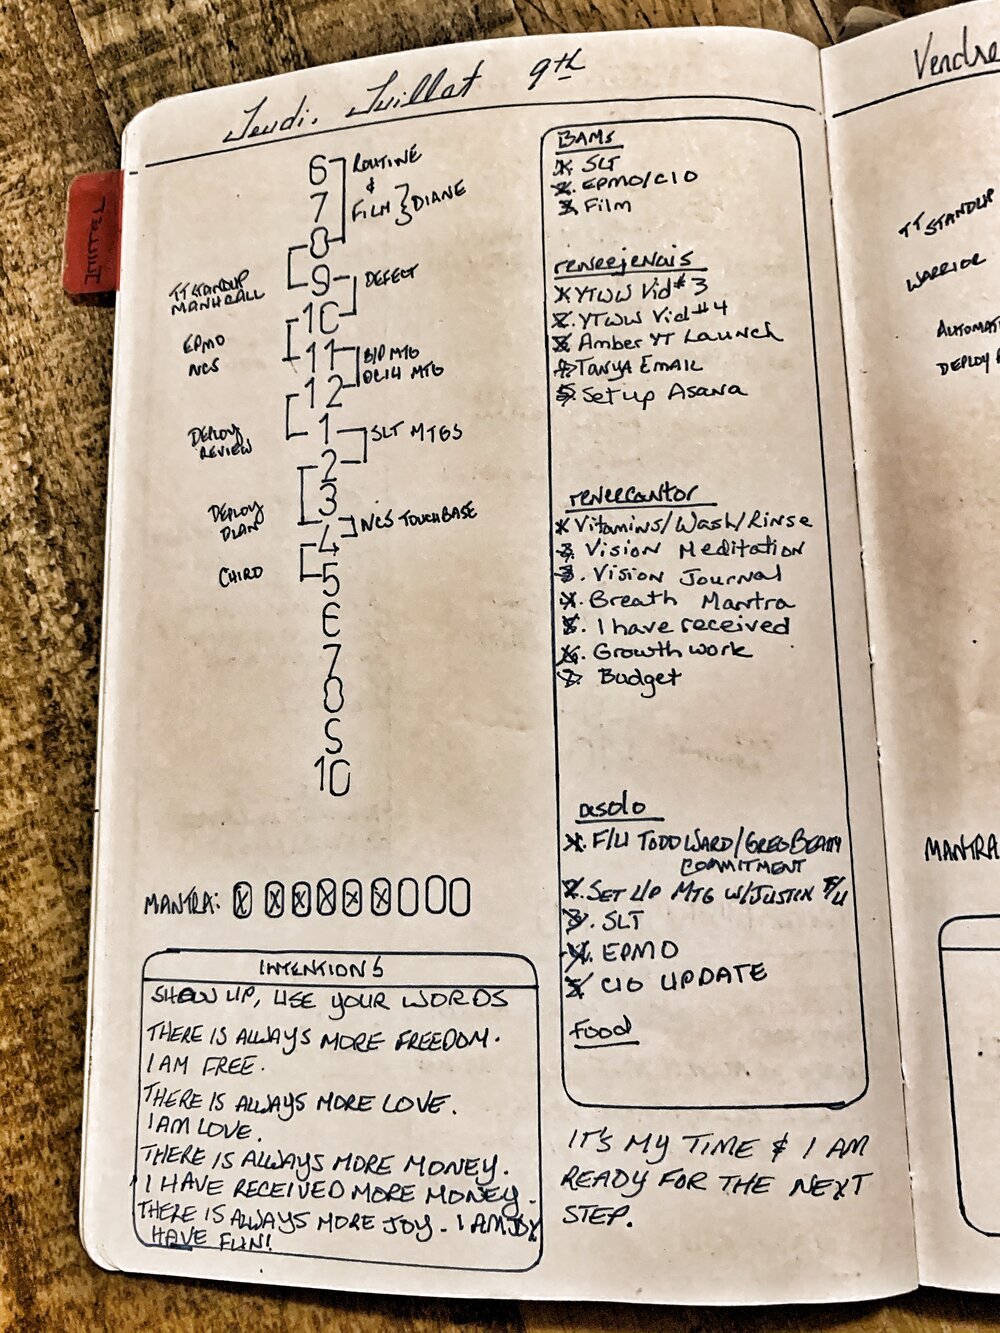 Jeudi, Juillat 9th
6
7
8
9
10
11
12
1
2
3
4
5
6
7
8
9
10
ROUTINE
&
FILM } DIANE
TT STANDUP
DEFECT
EPMO
NCS
B/P MTG
MTG
DEPLOY
REVIEW
SLT MTGS
DEPLOY
PLAN
NCS TOUCHBASE
CHIRO
MANTRA:
INTENTIONS
SHOW UP, USE YOUR WORDS
THERE IS ALWAYS MORE FREEDOM.
I AM FREE.
THERE IS ALWAYS MORE LOVE.
I AM LOVE.
THERE IS ALWAYS MORE MONEY.
I HAVE RECEIVED MORE MONEY.
THERE IS ALWAYS MORE JOY. I AM JOY
HAVE FUN!
BAMs
SLT
EPMO/CIO
Film
reneejenais
YTWW Vid #3
YTWW Vid #4
Amber YT Launch
TANYA EMAIL
Set up Asana
reneecantor
Vitamins/Wash/Rinse
Vision Meditation
Vision Journal
Breath Mantra
I have received
Growth work
Budget
asolo
F/U TODD WARD/GREG BEATTY
COMMITMENT
SET UP MTG W/JUSTIN F/U
SLT
EPMO
CIO UPDATE
Food
IT'S MY TIME & I AM
READY FOR THE NEXT
STEP.
Vendre
TT STANDUP
WARRIOR
AUTOMAT
DEPLOY
MANTRA